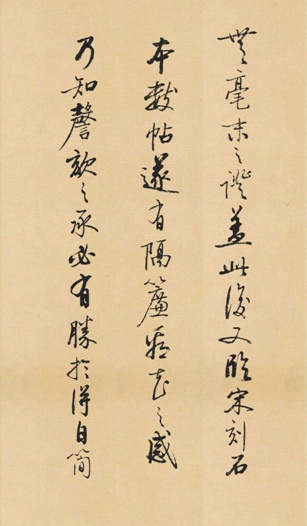 無毫末之蓋此後又臨宋刻石
本數帖遂有隔簾看花之感
乃知謦欬之承必有勝於得自簡